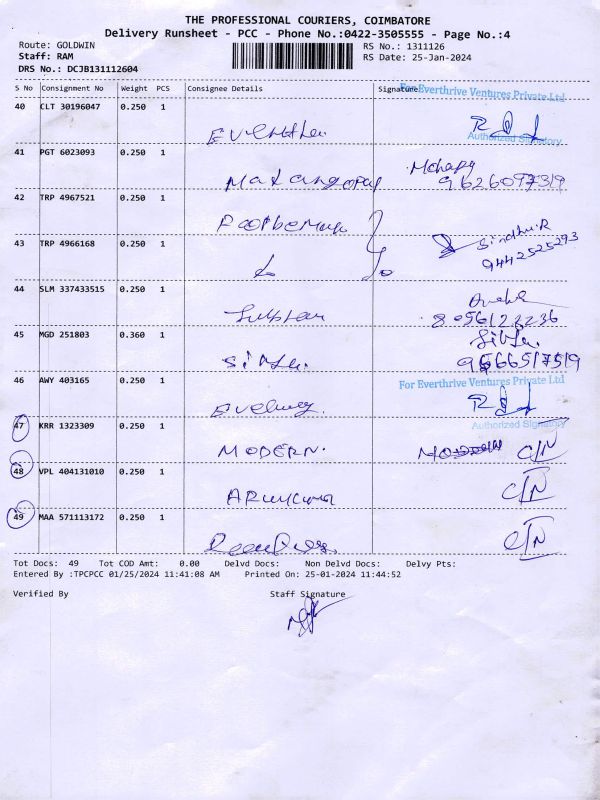 THE PROFESSIONAL COURIERS, COIMBATORE
Delivery Runsheet - PCC - Phone No.:0422-3505555 - Page No.:4
Route: GOLDWIN RS No.: 1311126
Staff: RAM RS Date: 25-Jan-2024
DRS No.: DCJB131112604
S No Consignment No Weight PCS Consignee Details Signature
For Everthrive Ventures Private Ltd
40 CLT 30196047 0.250 1
Authorized Signatory
41 PGT 6023093 0.250 1
9626097319
42 TRP 4967521 0.250 1
43 TRP 4966168 0.250 1 Sindhu.R
9442525293
44 SLM 337433515 0.250 1
8056122236
45 MGD 251803 0.360 1
95666517519
46 AWY 403165 0.250 1 For Everthrive Ventures Private Ltd
Authorized Signatory
47 KRR 1323309 0.250 1
MODERN. C/N
48 VPL 404131010 0.250 1
C/N
49 MAA 571113172 0.250 1
C/N
Tot Docs: 49 Tot COD Amt: 0.00 Delvd Docs: Non Delvd Docs: Delvy Pts:
Entered By :TPCPCC 01/25/2024 11:41:08 AM Printed On: 25-01-2024 11:44:52
Verified By Staff Signature